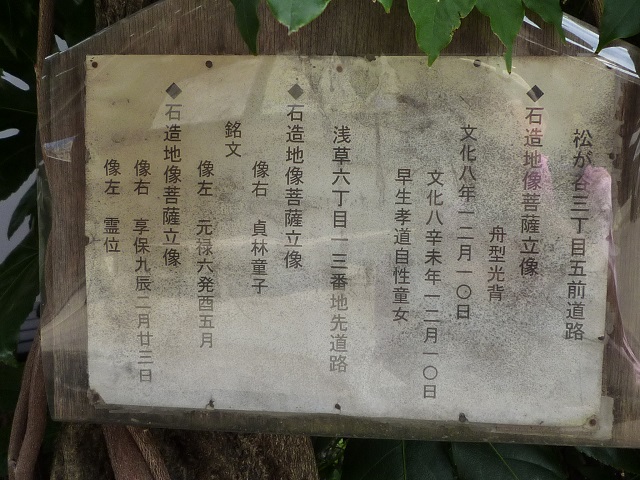 松が谷三丁目五前道路
◆石造地像菩薩立像
舟型光背
文化八年一二月一〇日
文化八辛未年一二月一〇日
早生孝道自性童女
浅草六丁目一三番地先道路
◆石造地像菩薩立像
像右 貞林童子
銘文
像左 元禄六発酉五月
◆石造地像菩薩立像
像右 享保九辰二月廿三日
像左 霊位